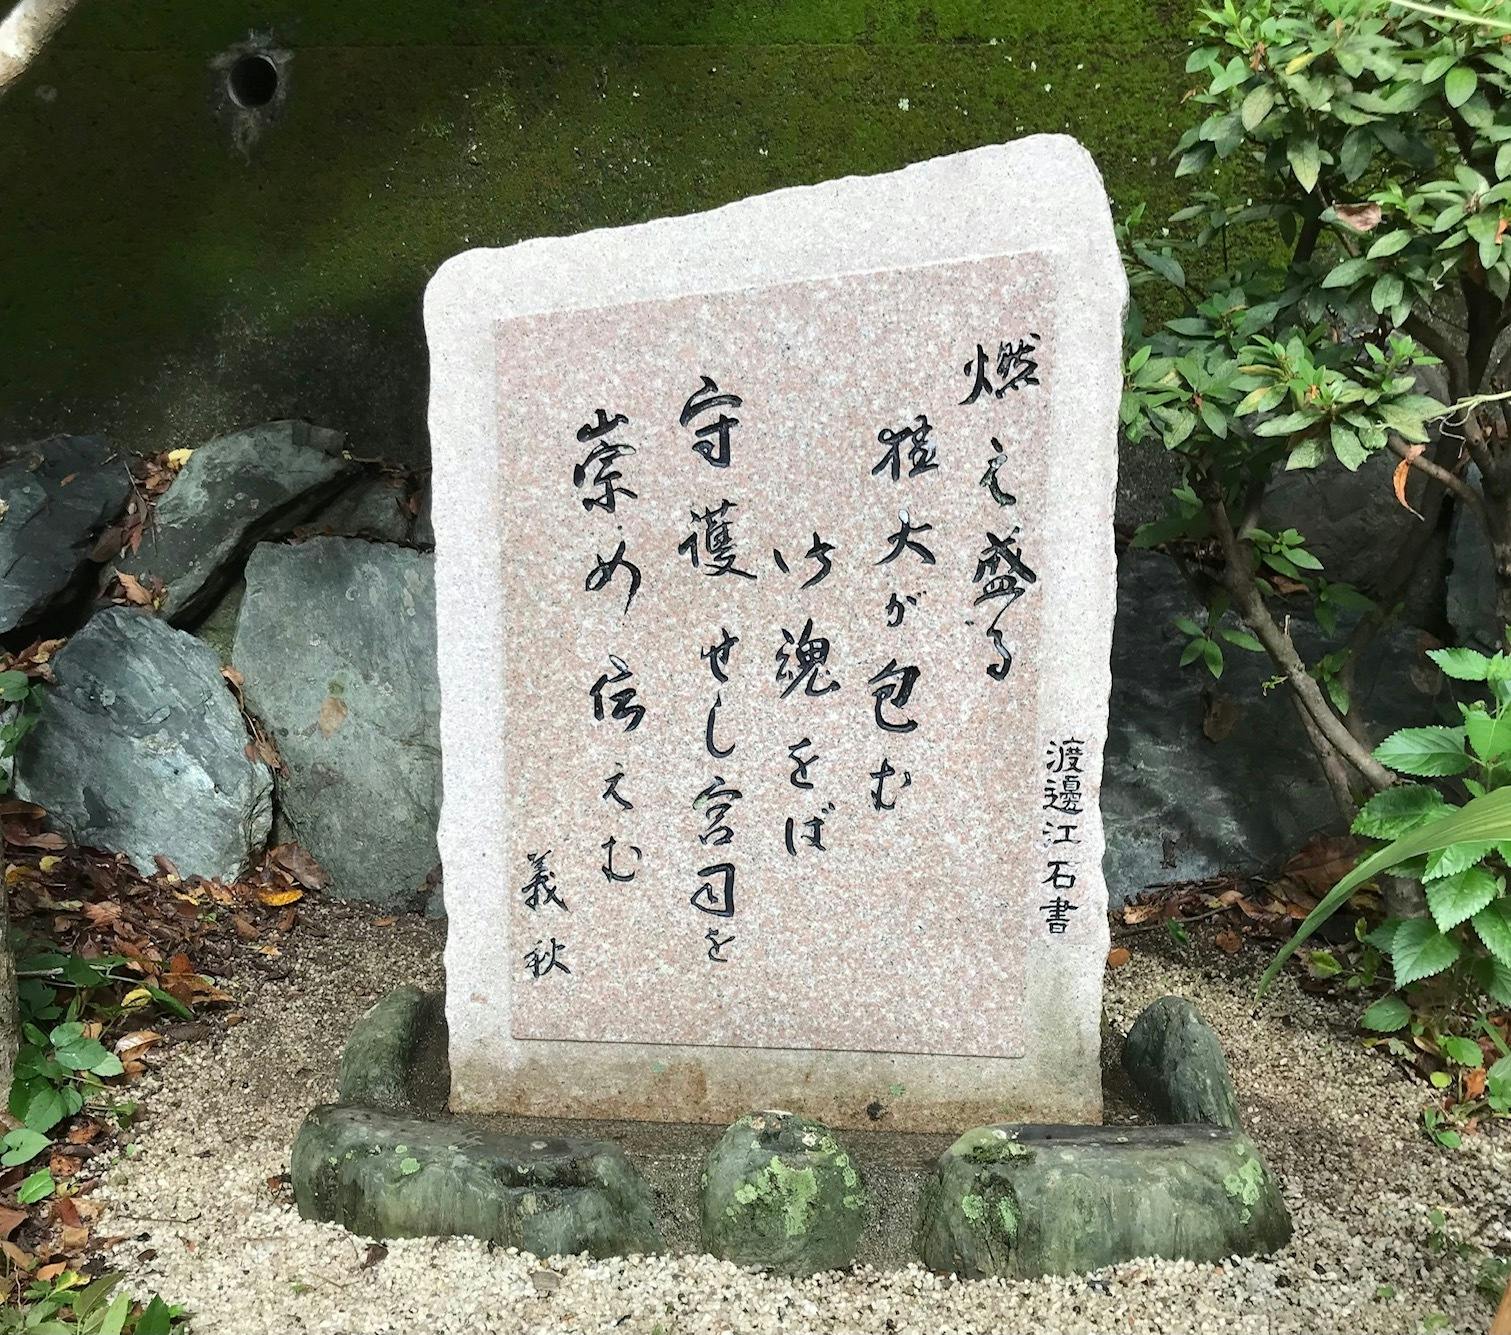 燃え盛る
猛火が包む
御魂をば
守護せし宮司を
崇め伝えむ
義秋
渡邊江石書